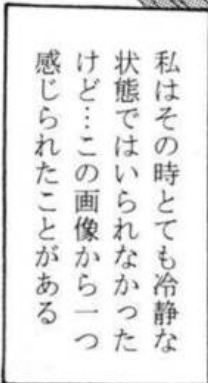 私はその時とても冷静な
状態ではいられなかった
けど…この画像から一つ
感じられたことがある